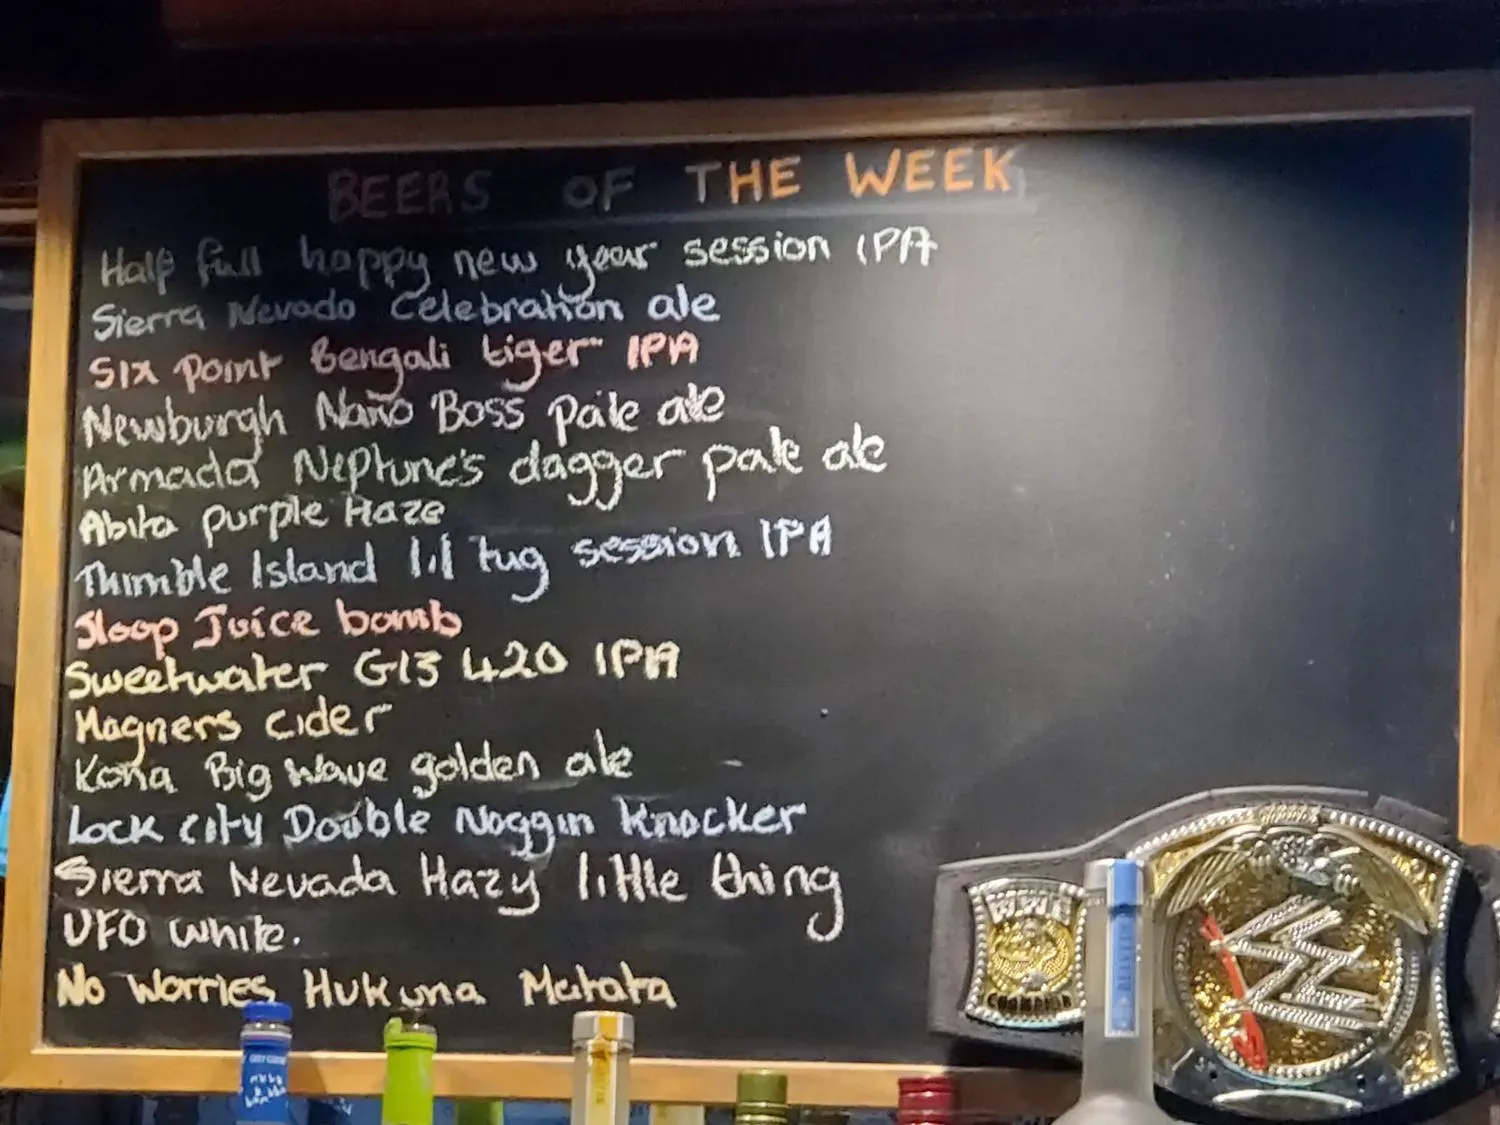 BEERS OF THE WEEK
Half full happy new year session IPA
Sierra Nevado Celebration ale
Six point Bengali tiger IPA
Newburgh Nano Boss pale ale
Armada Neptune's dagger pale ale
Abita purple Haze
Thimble Island lil tug session IPA
Sloop Juice bomb
Sweetwater G13 420 IPA
Magners cider
Kona Big Wave golden ale
Lock city Double Noggin Knocker
Sierra Nevada Hazy little thing
UFO white.
No Worries Hukuna Matata
WWE
CHAMPION
W
GREY GOOSE